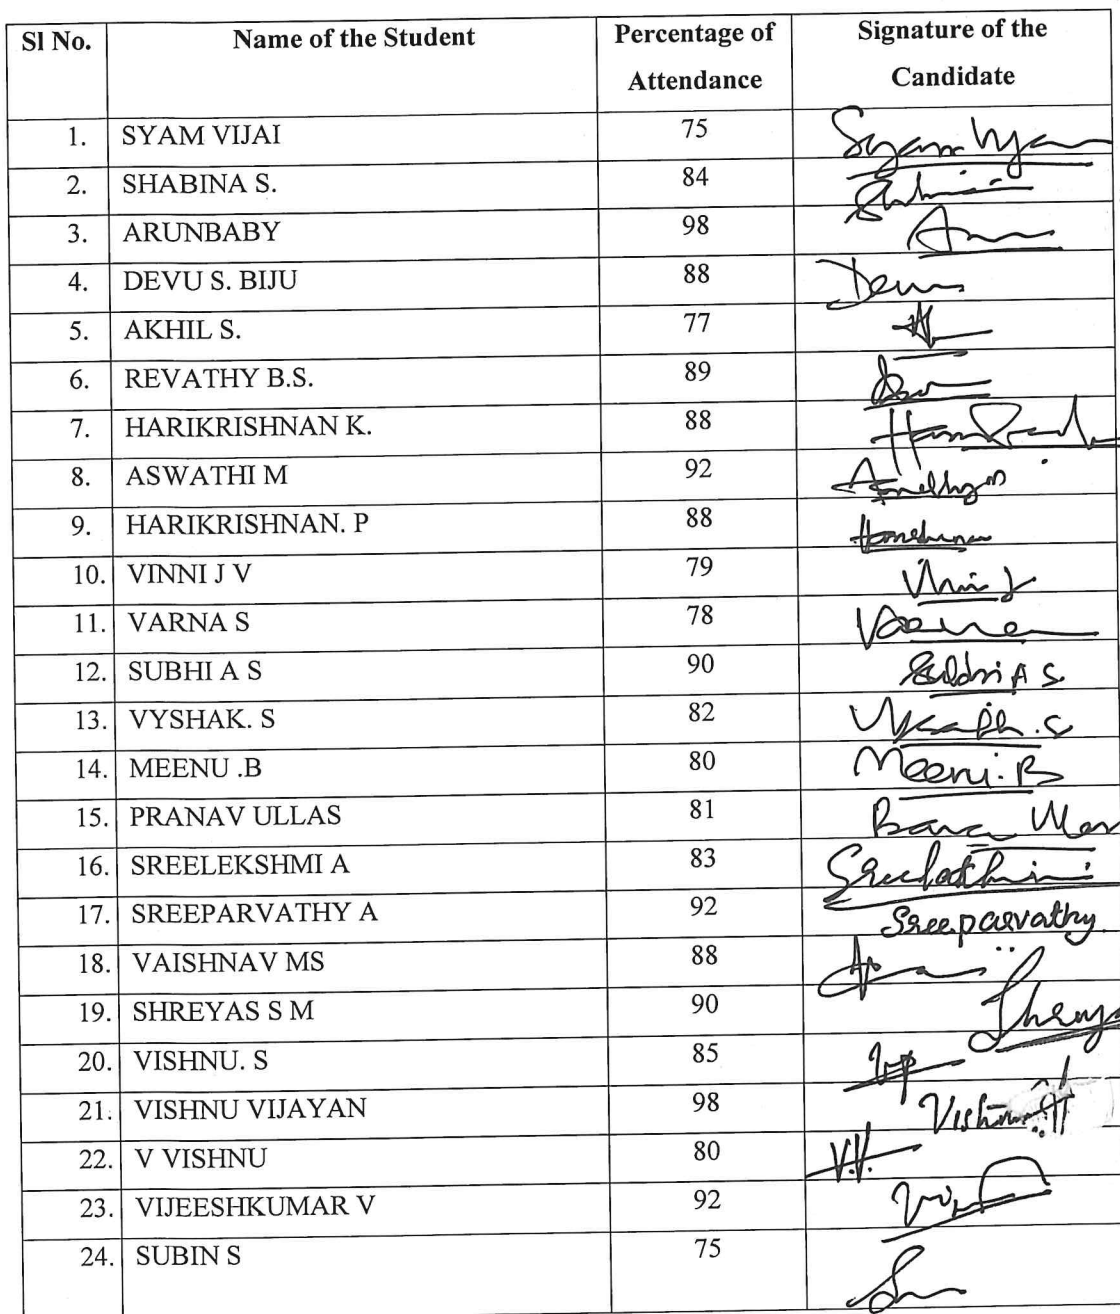 Sl No. Name of the Student Percentage of Attendance Signature of the Candidate
1. SYAM VIJAI 75
2. SHABINA S. 84
3. ARUNBABY 98
4. DEVU S. BIJU 88
5. AKHIL S. 77
6. REVATHY B.S. 89
7. HARIKRISHNAN K. 88
8. ASWATHI M 92
9. HARIKRISHNAN. P 88
10. VINNI J V 79
11. VARNA S 78
12. SUBHI A S 90
13. VYSHAK. S 82
14. MEENU .B 80 Meenu.B
15. PRANAV ULLAS 81
16. SREELEKSHMI A 83
17. SREEPARVATHY A 92 Sreeparvathy
18. VAISHNAV MS 88
19. SHREYAS S M 90
20. VISHNU. S 85
21. VISHNU VIJAYAN 98
22. V VISHNU 80 V.V.
23. VIJEESHKUMAR V 92
24. SUBIN S 75